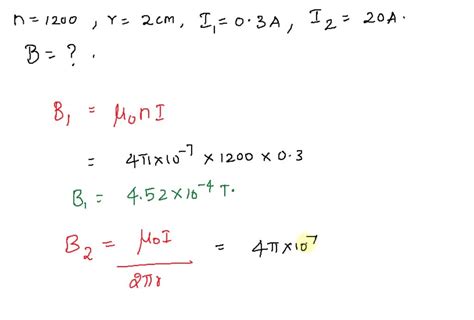 n = 1200 , r = 2cm, I₁ = 0.3A, I₂ = 20A.
B = ? .
B₁ = μ₀nI
= 4π×10⁻⁷ × 1200 × 0.3
B₁ = 4.52×10⁻⁴ T.
B₂ = μ₀I / 2πr = 4π×10⁻⁷